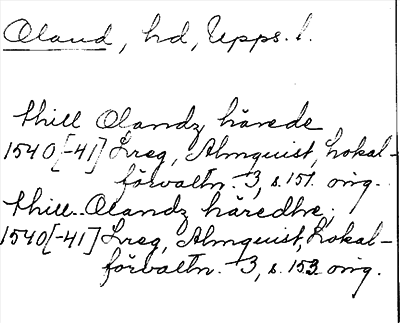 Oland, hd, Upps. l.
thill Olandz härede
1540[-41] Lreg, Almquist, Lokal-
förvaltn. 3, s. 151. orig.
thill.. Olandz häredhe;
1540[-41] Lreg, Almquist, Lokal-
förvaltn. 3, s. 153. orig.